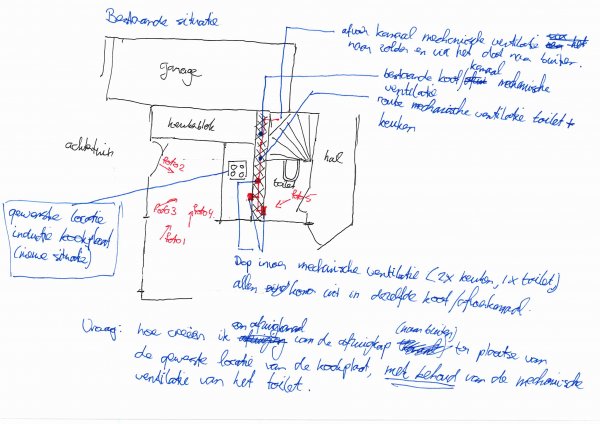 Bestaande situatie
afvoer kanaal mechanische ventilatie
naar zolder en via het dak naar buiten.
bestaande koof/kanaal mechanische
ventilatie
route mechanische ventilatie toilet +
keuken
garage
keukenblok
achtertuin
hal
toilet
foto 2
foto 5
foto 3
foto 4
foto 1
gewenste locatie
inductie kookplaat
(nieuwe situatie)
Dop invoer mechanische ventilatie (2x keuken, 1x toilet)
allen komen uit in dezelfde koof/afvoerkanaal.
Vraag: hoe creëer ik een afzuigkanaal van de afzuigkap (naar buiten) ter plaatse van
de gewenste locatie van de kookplaat, met behoud van de mechanische
ventilatie van het toilet.